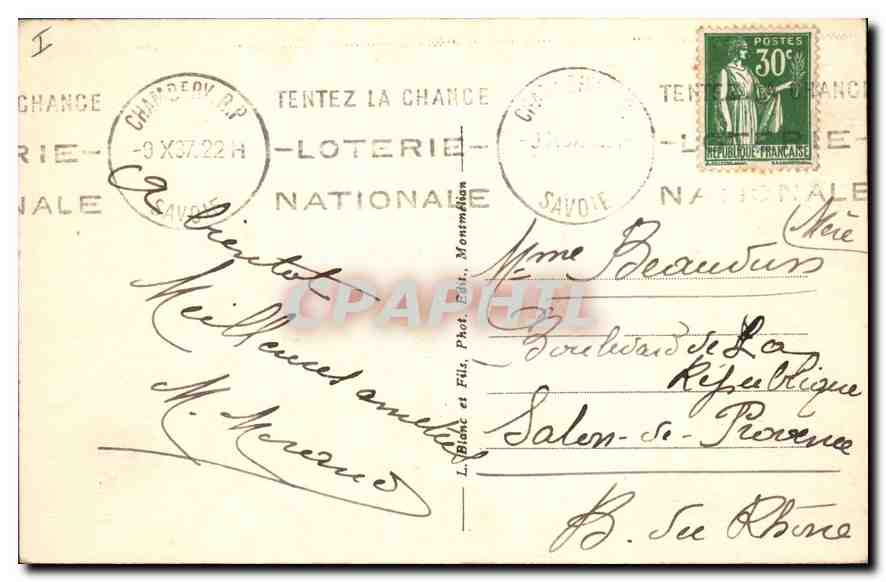 I
CHAMBERY R.P
-9 X37.22 H
SAVOIE
CHANCE
RIE-
NALE
TENTEZ LA CHANCE
-LOTERIE-
NATIONALE
SAVOIE
TENTEZ LA CHANCE
-LOTERIE-
NATIONALE
POSTES
30c
REPUBLIQUE-FRANCAISE
A bientot
Meilleures amitiés
M. Morand
L. Blanc et Fils, Phot. Edit., Montmélian
CPAPHIL
(Mère
Mme
Boulevard de La
République
Salon-de-Provence
B. du Rhône